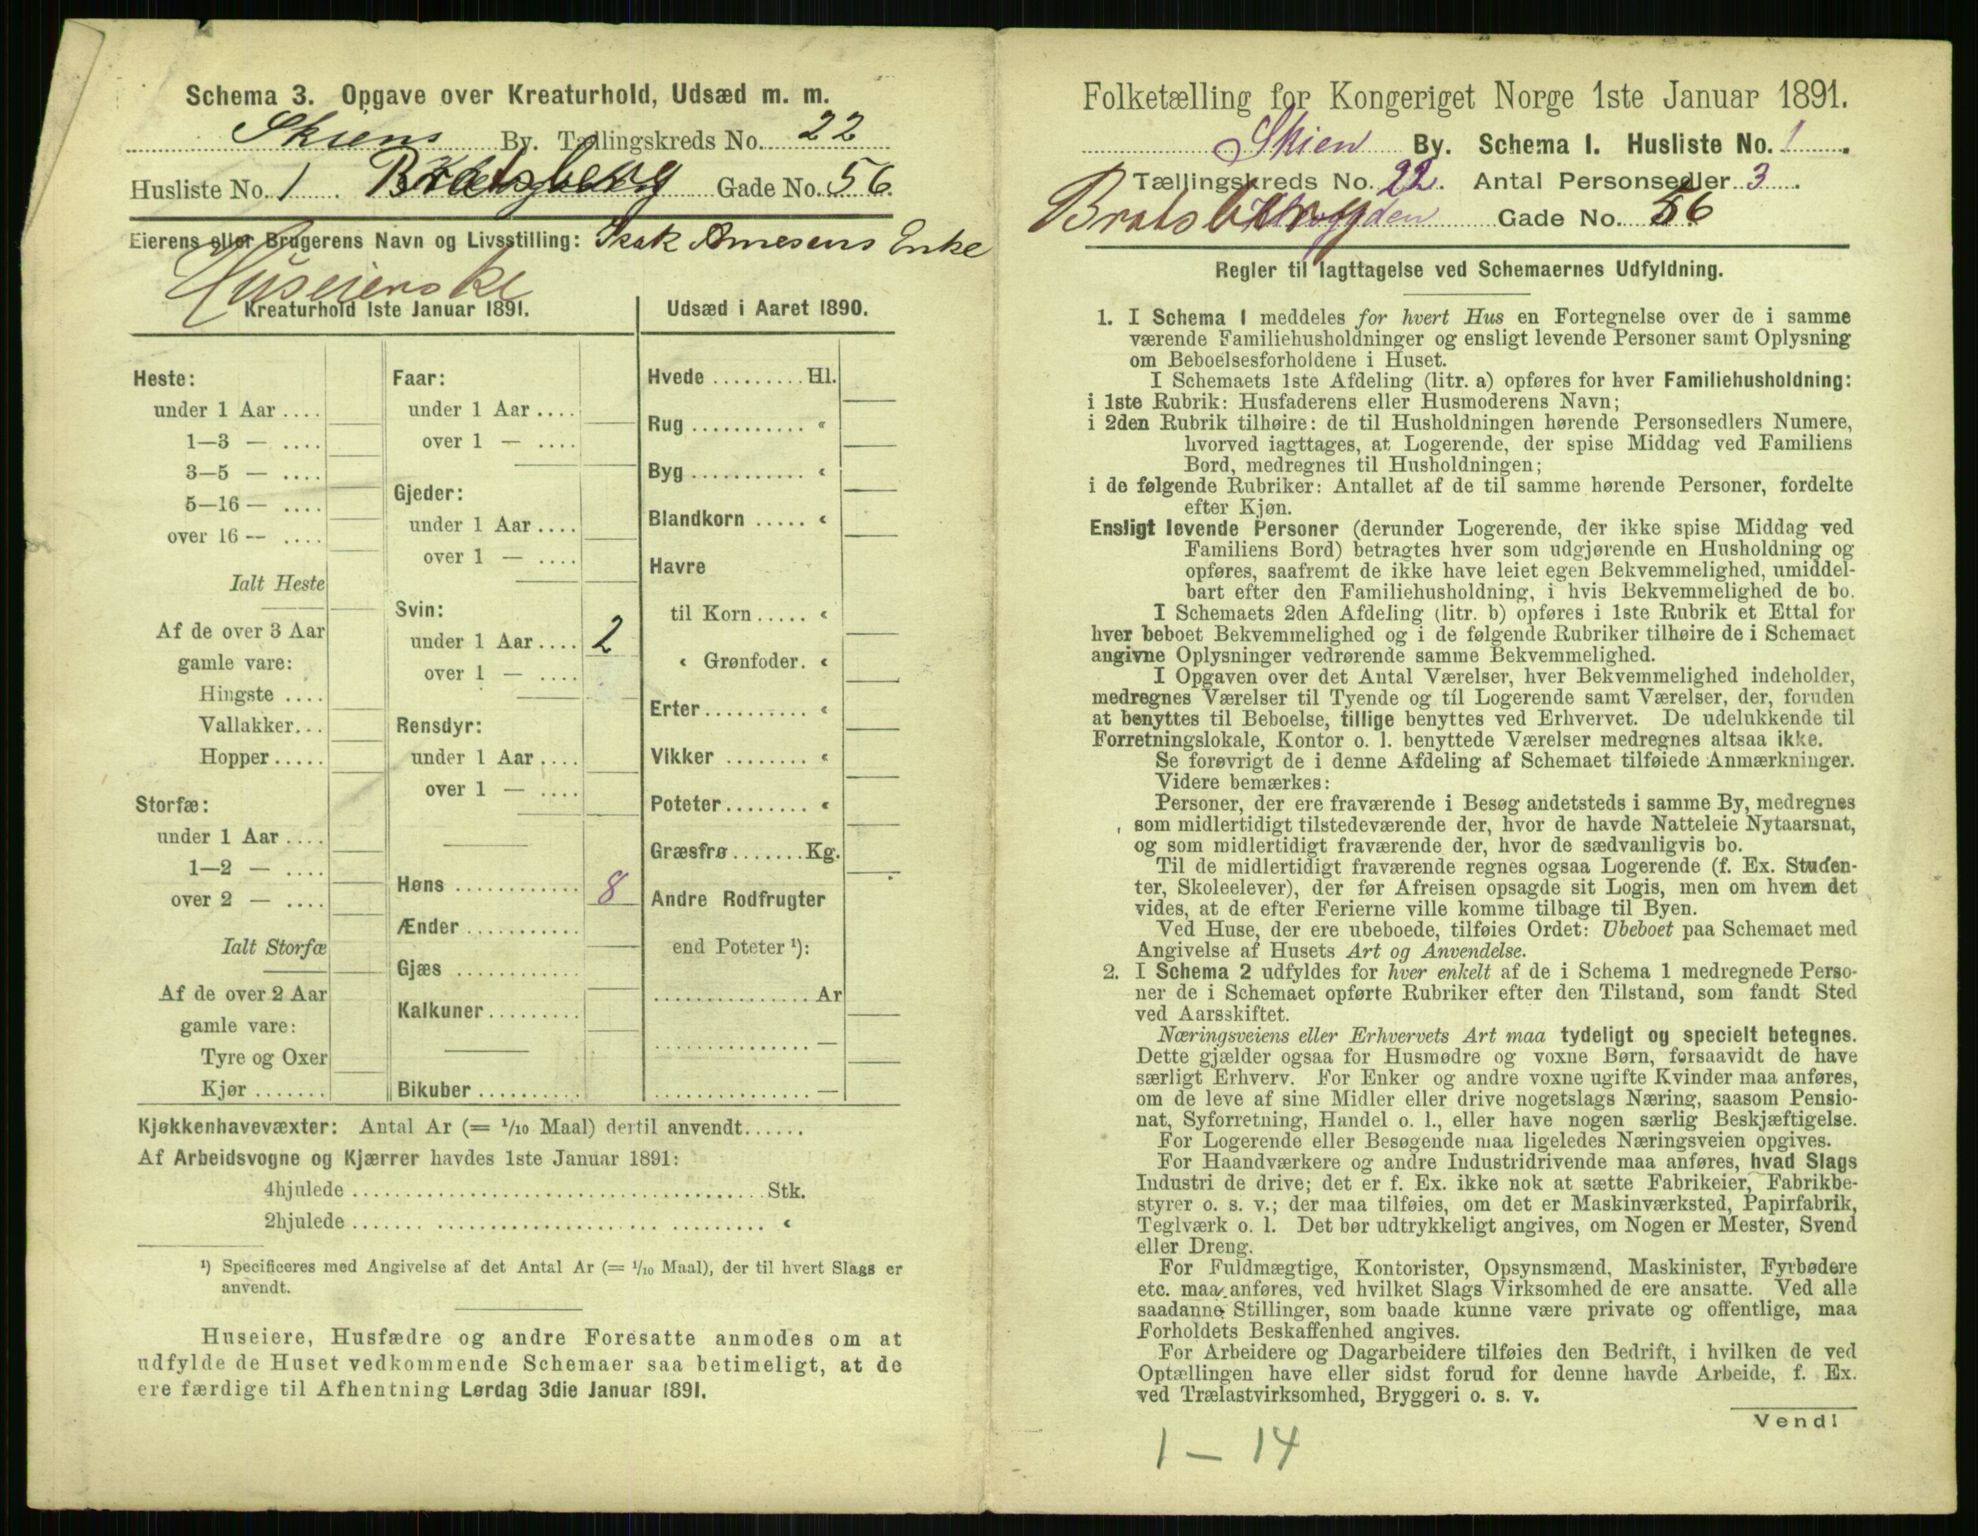 Schema 3. Opgave over Kreaturhold, Udsæd m. m.
Skiens By. Tællingskreds No. 22
Husliste No. 1 Bratsberg Gade No. 56
Eierens eller Brugerens Navn og Livsstilling: Isak Arnesens Enke
Huseierske
Kreaturhold 1ste Januar 1891.
Heste:
under 1 Aar ....
1—3 — ....
3—5 — ....
5—16 — ....
over 16 — ....
Ialt Heste
Af de over 3 Aar
gamle vare:
Hingste ....
Vallakker...
Hopper.....
Storfæ:
under 1 Aar ....
1—2 — ....
over 2 — ....
Ialt Storfæ
Af de over 2 Aar
gamle vare:
Tyre og Oxer
Kjør .......
Faar:
under 1 Aar ....
over 1 — ....
Gjeder:
under 1 Aar ....
over 1 — ....
Svin:
under 1 Aar .... 2
over 1 — ....
Rensdyr:
under 1 Aar ....
over 1 — ....
Høns ............ 8
Ænder ...........
Gjæs ............
Kalkuner.........
Bikuber ..........
Udsæd i Aaret 1890.
Hvede ......... Hl.
Rug ........... «
Byg ........... «
Blandkorn ..... «
Havre
til Korn ..... «
« Grønfoder. «
Erter.......... «
Vikker ........ «
Poteter........ «
Græsfrø ....... Kg.
Andre Rodfrugter
end Poteter ¹):
............... Ar
............... —
............... —
Kjøkkenhavevæxter: Antal Ar (= 1/10 Maal) dertil anvendt......
Af Arbeidsvogne og Kjærrer havdes 1ste Januar 1891:
4hjulede ...................................... Stk.
2hjulede ...................................... «
¹) Specificeres med Angivelse af det Antal Ar (= 1/10 Maal), der til hvert Slags er
anvendt.
Huseiere, Husfædre og andre Foresatte anmodes om at
udfylde de Huset vedkommende Schemaer saa betimeligt, at de
ere færdige til Afhentning Lørdag 3die Januar 1891.
Folketælling for Kongeriget Norge 1ste Januar 1891.
Skien By. Schema I. Husliste No. 1
Tællingskreds No. 22. Antal Personsedler 3
Bratsberg Gade No. 56
Regler til Iagttagelse ved Schemaernes Udfyldning.
1. I Schema 1 meddeles for hvert Hus en Fortegnelse over de i samme
værende Familiehusholdninger og ensligt levende Personer samt Oplysning
om Beboelsesforholdene i Huset.
I Schemaets 1ste Afdeling (litr. a) opføres for hver Familiehusholdning:
i 1ste Rubrik: Husfaderens eller Husmoderens Navn;
i 2den Rubrik tilhøire: de til Husholdningen hørende Personsedlers Numere,
hvorved iagttages, at Logerende, der spise Middag ved Familiens
Bord, medregnes til Husholdningen;
i de følgende Rubriker: Antallet af de til samme hørende Personer, fordelte
efter Kjøn.
Ensligt levende Personer (derunder Logerende, der ikke spise Middag ved
Familiens Bord) betragtes hver som udgjørende en Husholdning og
opføres, saafremt de ikke have leiet egen Bekvemmelighed, umiddel-
bart efter den Familiehusholdning, i hvis Bekvemmelighed de bo.
I Schemaets 2den Afdeling (litr. b) opføres i 1ste Rubrik et Ettal for
hver beboet Bekvemmelighed og i de følgende Rubriker tilhøire de i Schemaet
angivne Oplysninger vedrørende samme Bekvemmelighed.
I Opgaven over det Antal Værelser, hver Bekvemmelighed indeholder,
medregnes Værelser til Tyende og til Logerende samt Værelser, der, foruden
at benyttes til Beboelse, tillige benyttes ved Erhvervet. De udelukkende til
Forretningslokale, Kontor o. l. benyttede Værelser medregnes altsaa ikke.
Se forøvrigt de i denne Afdeling af Schemaet tilføiede Anmærkninger.
Videre bemærkes:
Personer, der ere fraværende i Besøg andetsteds i samme By, medregnes
som midlertidigt tilstedeværende der, hvor de havde Natteleie Nytaarsnat,
og som midlertidigt fraværende der, hvor de sædvanligvis bo.
Til de midlertidigt fraværende regnes ogsaa Logerende (f. Ex. Studen-
ter, Skoleelever), der før Afreisen opsagde sit Logis, men om hvem det
vides, at de efter Ferierne ville komme tilbage til Byen.
Ved Huse, der ere ubeboede, tilføies Ordet: Ubeboet paa Schemaet med
Angivelse af Husets Art og Anvendelse.
2. I Schema 2 udfyldes for hver enkelt af de i Schema 1 medregnede Perso-
ner de i Schemaet opførte Rubriker efter den Tilstand, som fandt Sted
ved Aarsskiftet.
Næringsveiens eller Erhvervets Art maa tydeligt og specielt betegnes.
Dette gjælder ogsaa for Husmødre og voxne Børn, forsaavidt de have
særligt Erhverv. For Enker og andre voxne ugifte Kvinder maa anføres,
om de leve af sine Midler eller drive nogetslags Næring, saasom Pensio-
nat, Syforretning, Handel o. l., eller have nogen særlig Beskjæftigelse.
For Logerende eller Besøgende maa ligeledes Næringsveien opgives.
For Haandværkere og andre Industridrivende maa anføres, hvad Slags
Industri de drive; det er f. Ex. ikke nok at sætte Fabrikeier, Fabrikbe-
styrer o. s. v.; der maa tilføies, om det er Maskinværksted, Papirfabrik,
Teglværk o. l. Det bør udtrykkeligt angives, om Nogen er Mester, Svend
eller Dreng.
For Fuldmægtige, Kontorister, Opsynsmænd, Maskinister, Fyrbødere
etc. maa anføres, ved hvilket Slags Virksomhed de ere ansatte. Ved alle
saadanne Stillinger, som baade kunne være private og offentlige, maa
Forholdets Beskaffenhed angives.
For Arbeidere og Dagarbeidere tilføies den Bedrift, i hvilken de ved
Optællingen have eller sidst forud for denne havde Arbeide, f. Ex.
ved Trælastvirksomhed, Bryggeri o. s. v.
Vend!
1 — 14